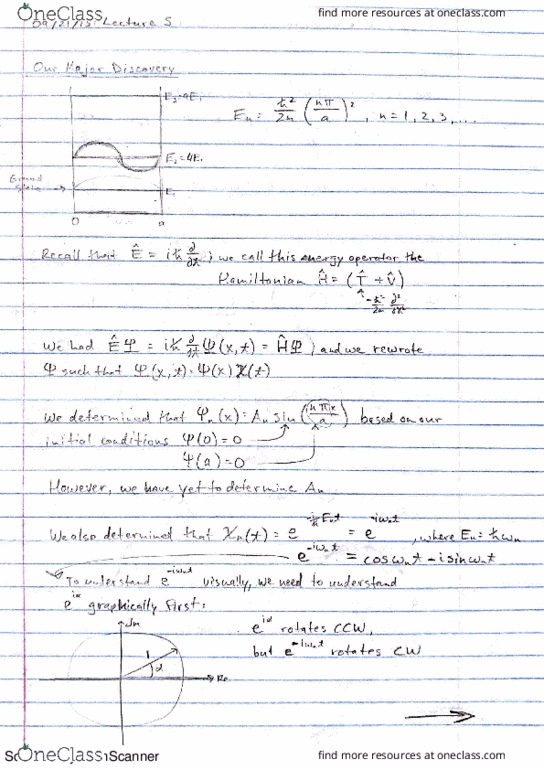 OneClass
find more resources at oneclass.com
09/21/15: Lecture 5
Our Major Discovery
E₃=9E₁
Eₙ = ħ²/2m (nπ/a)², n=1,2,3,...
E₂=4E₁
Ground
E₁
0 a
Recall that Ê = iħ ∂/∂t; we call this energy operator the
Hamiltonian Ĥ = (T̂ + V̂)
-ħ²/2m ∂²/∂x²
We had ÊΨ = iħ ∂/∂t Ψ(x,t) = ĤΨ, and we rewrote
Ψ such that Ψ(x,t)=Ψ(x)χ(t)
We determined that Ψₙ(x)=Aₙ sin(nπx/a) based on our
initial conditions Ψ(0)=0
Ψ(a)=0
However, we have yet to determine Aₙ
We also determined that χₙ(t) = e^(-i/ħ Eₙt) = e^(-iωₙt), where Eₙ=ħωₙ
e^(-iωₙt) = cosωₙt - isinωₙt
To understand e^(-iωₙt) visually, we need to understand
e^(iα) graphically first:
Im
e^(iα) rotates CCW,
but e^(-iωₙt) rotates CW
1
α
Re
OneClass
Scanner
find more resources at oneclass.com